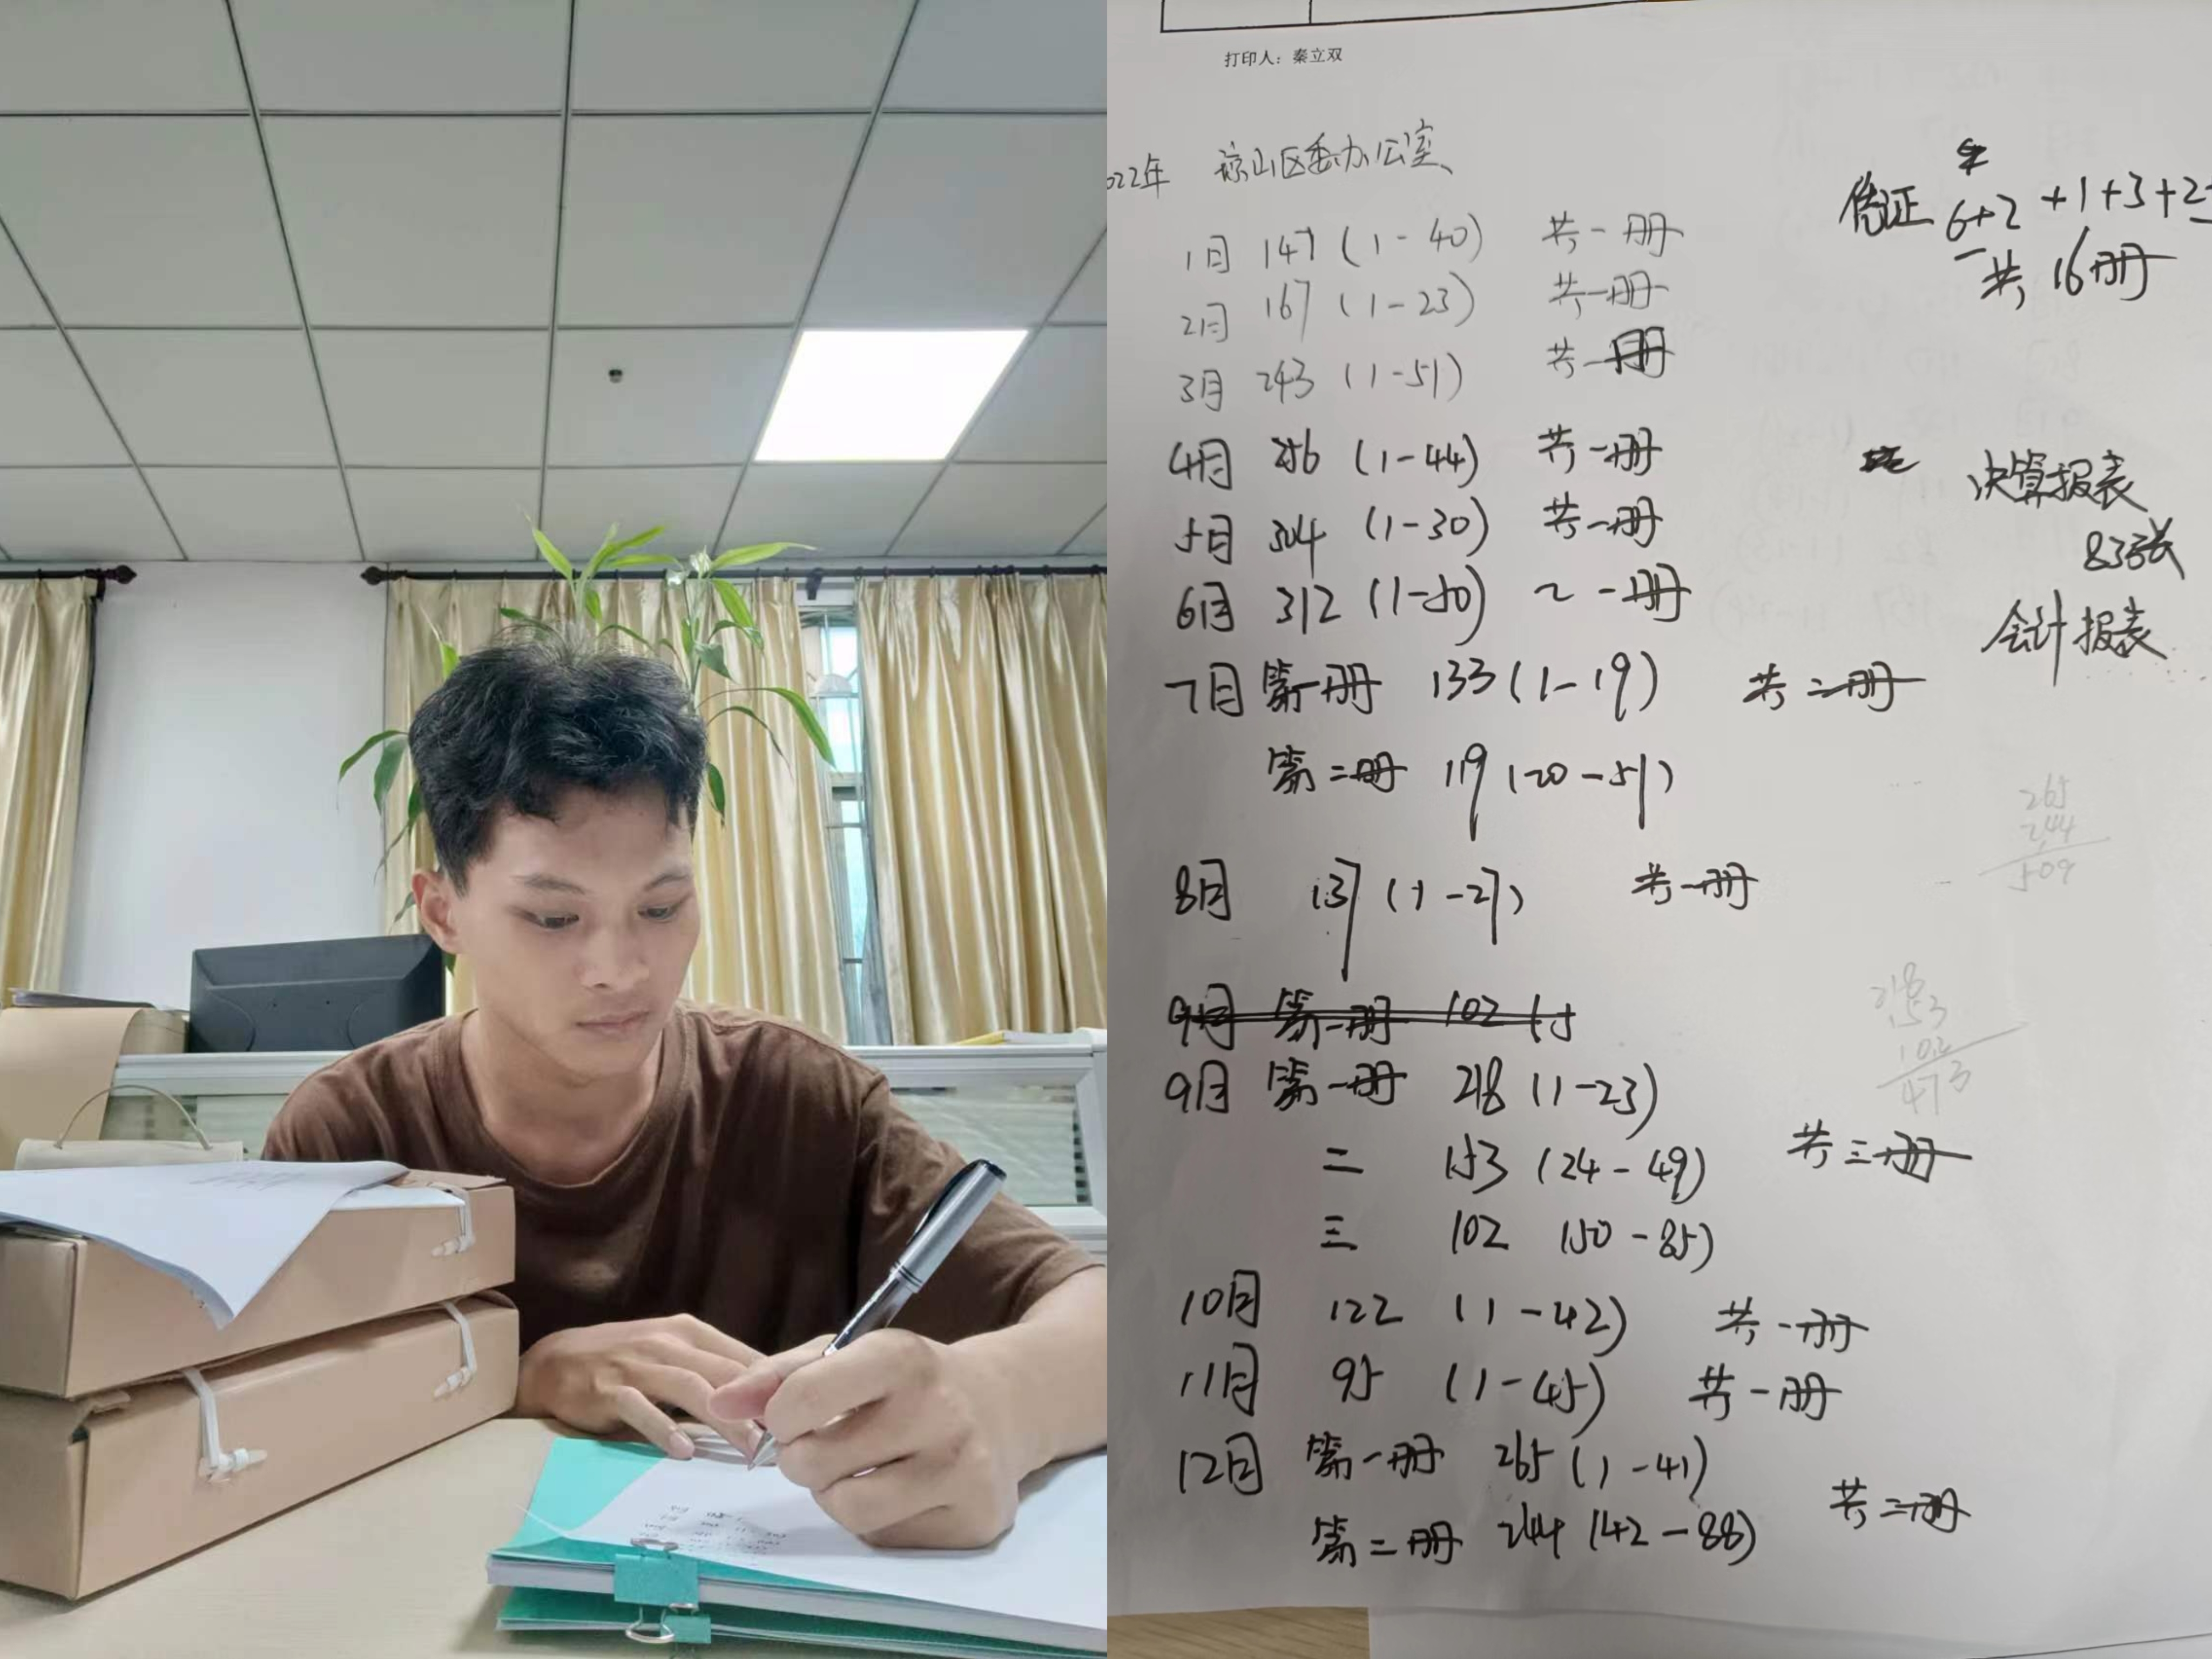 打印人：秦立双
022年 琼山区委办公室
凭证 6+2+1+3+2
共16册
1月 147 (1-40) 共一册
2月 167 (1-23) 共一册
3月 243 (1-51) 共一册
4月 256 (1-44) 共一册
5月 304 (1-30) 共一册
6月 312 (1-50) ~ 一册
决算报表
83张
会计报表
7月 第一册 133 (1-19) 共二册
第二册 119 (20-51)
265
244
509
8月 137 (1-27) 共一册
9月 第一册 102 (5
218
153
102
473
9月 第一册 218 (1-23)
二 153 (24-49) 共三册
三 102 (50-85)
10月 122 (1-42) 共一册
11月 95 (1-45) 共一册
12月 第一册 265 (1-41)
第二册 244 (42-88) 共二册